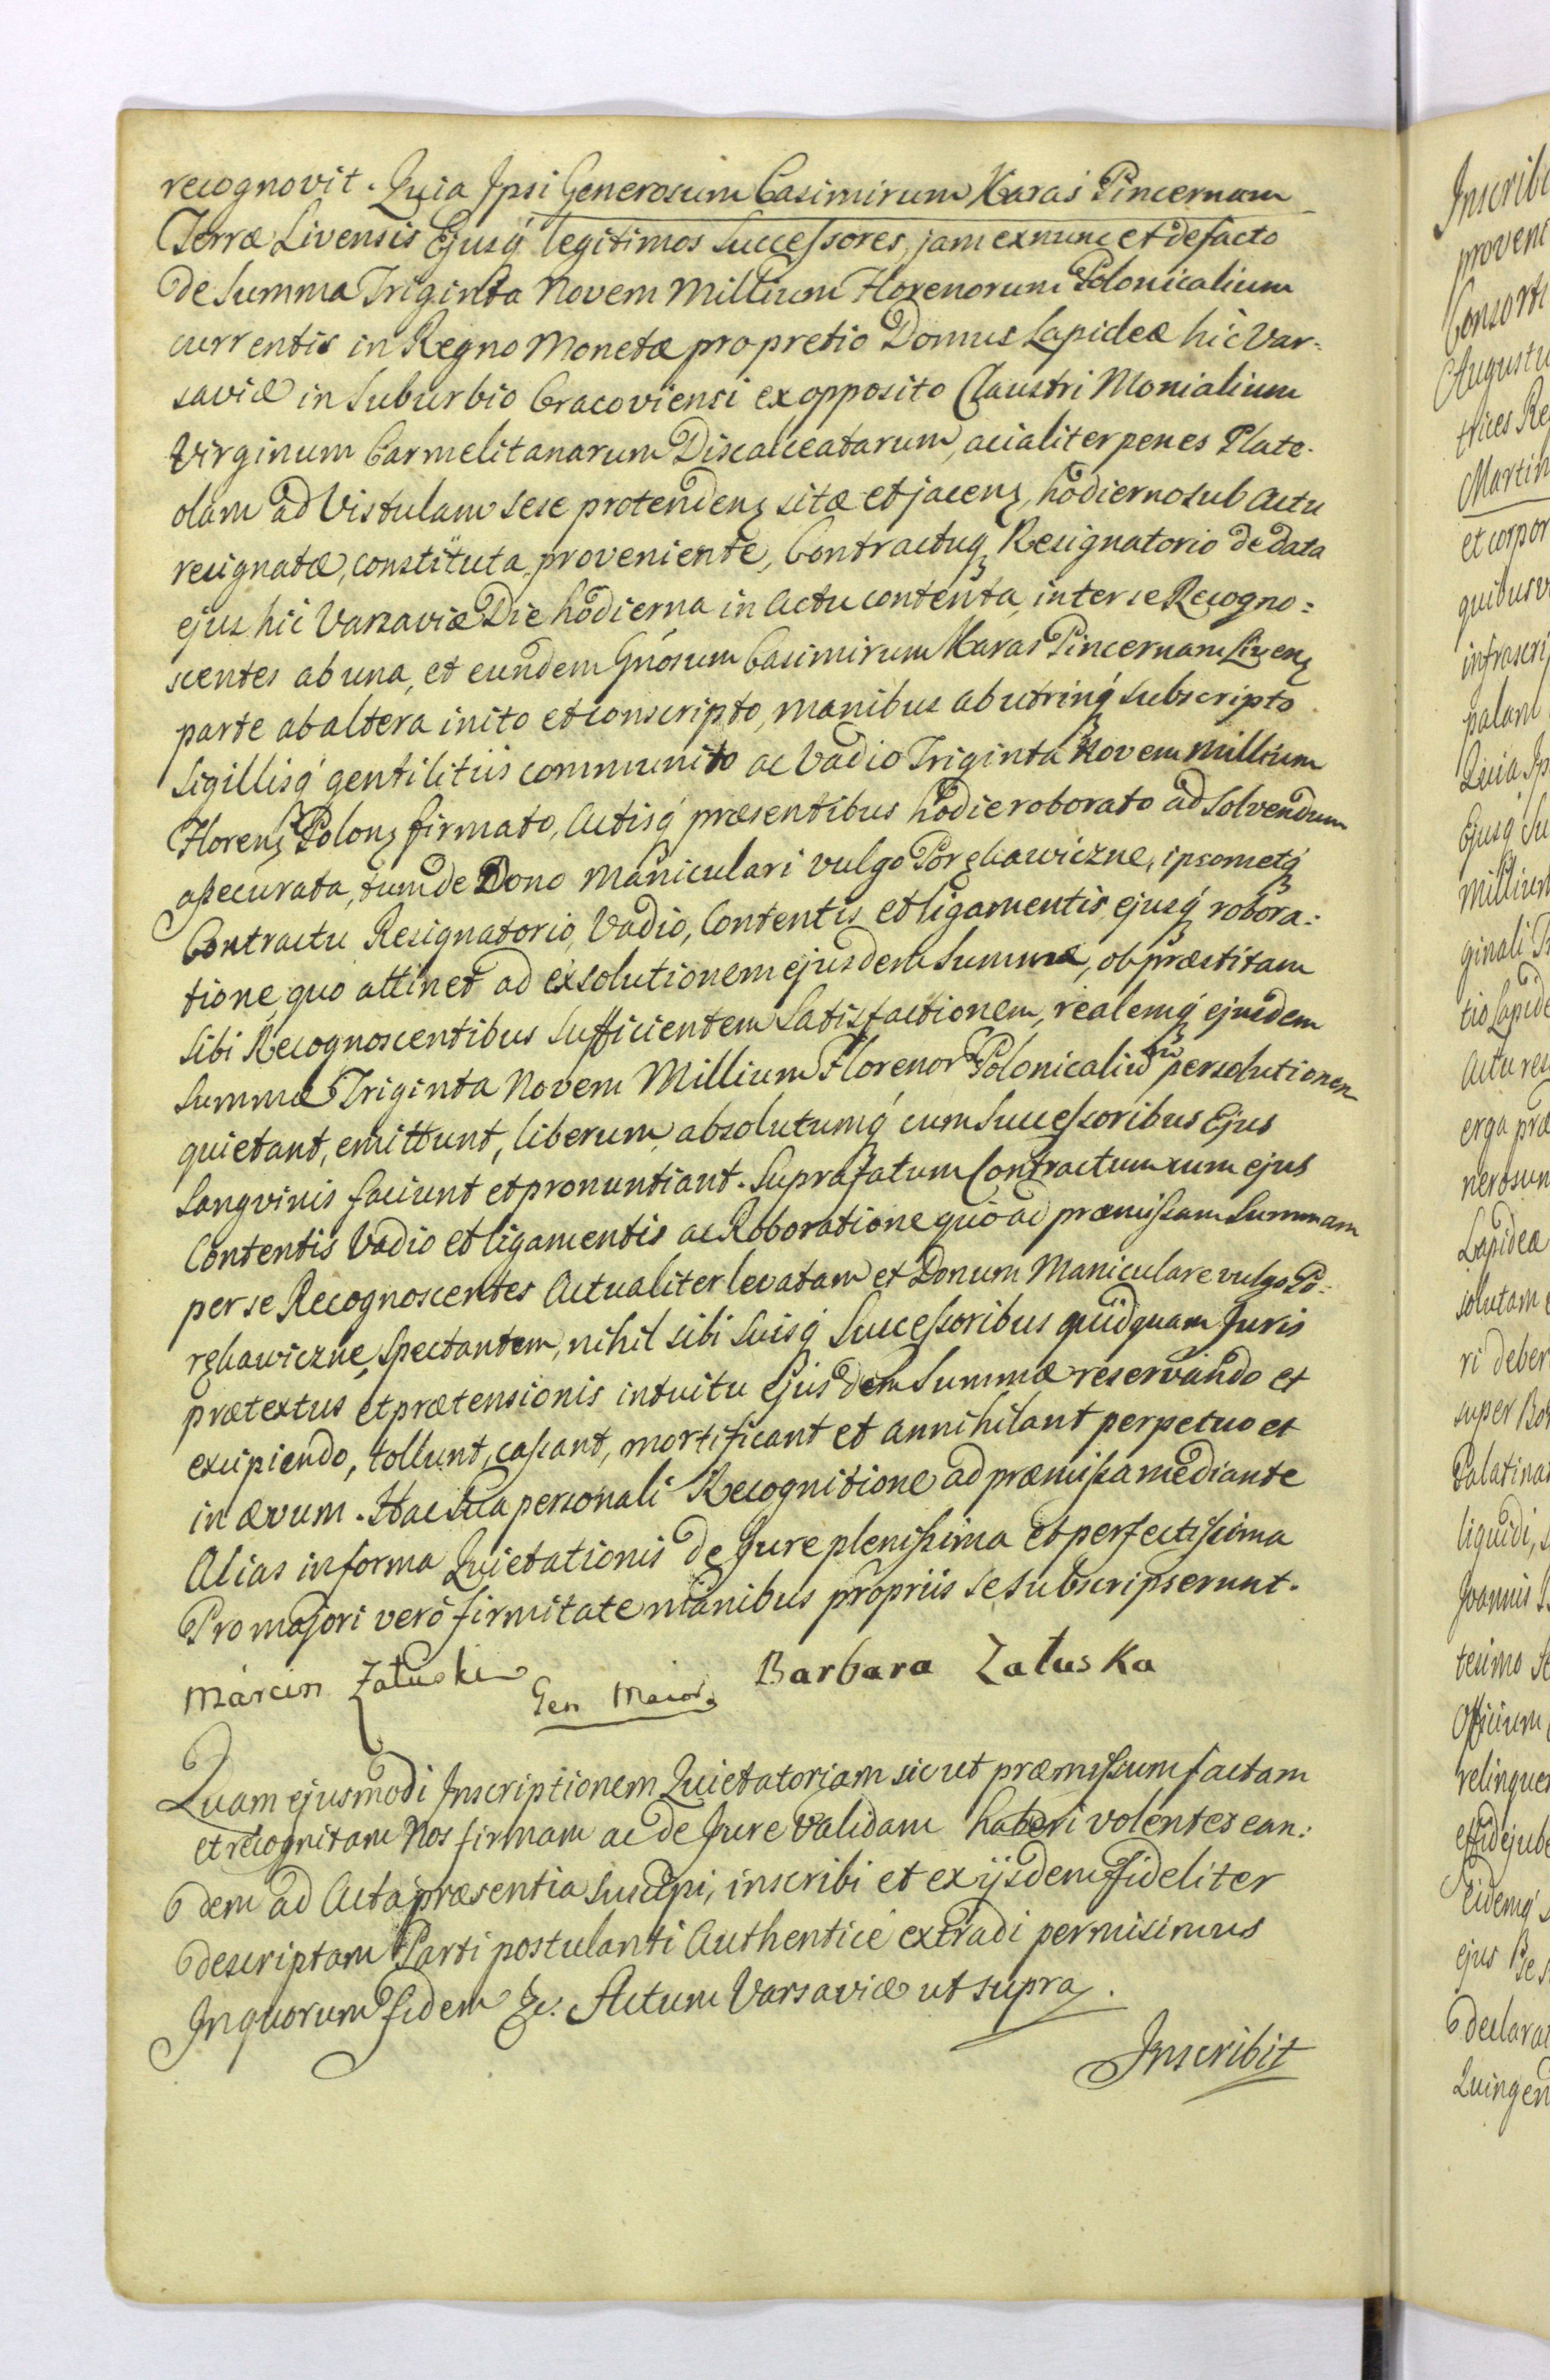 recognovit. Quia Ipsi Generosum Casimirum Karaś Pincernam
Terræ Livensis Ejusq́ legitimos Successores, jam exnunc et defacto
de Summa Triginta Novem Millium Florenorum Polonicalium
currentis in Regno Monetæ pro pretio Domus Lapideæ hic Var=
saviæ in Suburbio Cracoviensi ex opposito Claustri Monialium
Virginum Carmelitanarum Discalceatarum, acialiter penes Plate-
olam ad Vistulam sese protendenꝫ sitæ et jacenꝫ, hodierno sub Actu
resignatæ, constituta, proveniente, Contractuqꝫ Resignatorio de data
ejus hic Varsaviæ Die hodierna in Actu contenta, inter se Recogno=
scentes ab una, et eundem Gnosum Casimirum Karaś Pincernam Livenꝫ
parte ab altera inito et conscripto, manibus ab utrinq́ subscripto
Sigillisq́ gentilitiis communito ac Vadio Triginta Novem Millium
Florenꝫ Polonꝫ firmato, Actisq́ præsentibus hodie roborato ad solvendum
assecurata, tum de Dono Maniculari vulgo Porękawiczne, ipsometq́
Contractu Resignatorio, Vadio, Contentis et ligamentis, ejusq́ robora=
tione, quo attinet ad exsolutionem ejusdem Summæ, ob præstitam
sibi Recognoscentibus sufficientem Satisfactionem, realemq́ ejusdem
Summæ Triginta Novem Millium Florenor Polonicaliū persolutionem
quietant, emittunt, liberum, absolutumq́ cum Successoribus Ejus
Sangvinis faciunt et pronuntiant. Suprafatum Contractum cum ejus
Contentis Vadio et ligamentis ac Roboratione quo ad præmissam Summam
per se Recognoscentes Actualiter levatam et Donum Maniculare vulgo Po=
rękawiczne, spectantem, nihil sibi Suisq́ Successoribus quidquam Juris
prætextus et prætensionis intuitu Ejusdem Summæ reservando et
excipiendo, tollunt, cassant, mortificant et annihilant perpetuo et
in ævum. Hac Sua personali Recognitione ad præmissa mediante
Alias in forma Quietationis de Jure plenissima et perfectissima
Pro majori verò firmitate manibus propriis se subscripserunt.
Marcin Załuski Gen Maior Barbara Załuska
Quam ejusmodi Inscriptionem Quietatoriam sicut præmissum factam
et recognitam Nos firmam ac de Jure validam haberi volentes ean=
dem ad Acta præsentia suscipi, inscribi et ex ijsdem fideliter
descriptam Parti postulanti Authenticè extradi permisimus
In quorum fidem &c. Actum Varsaviæ ut supra.
Inscribit